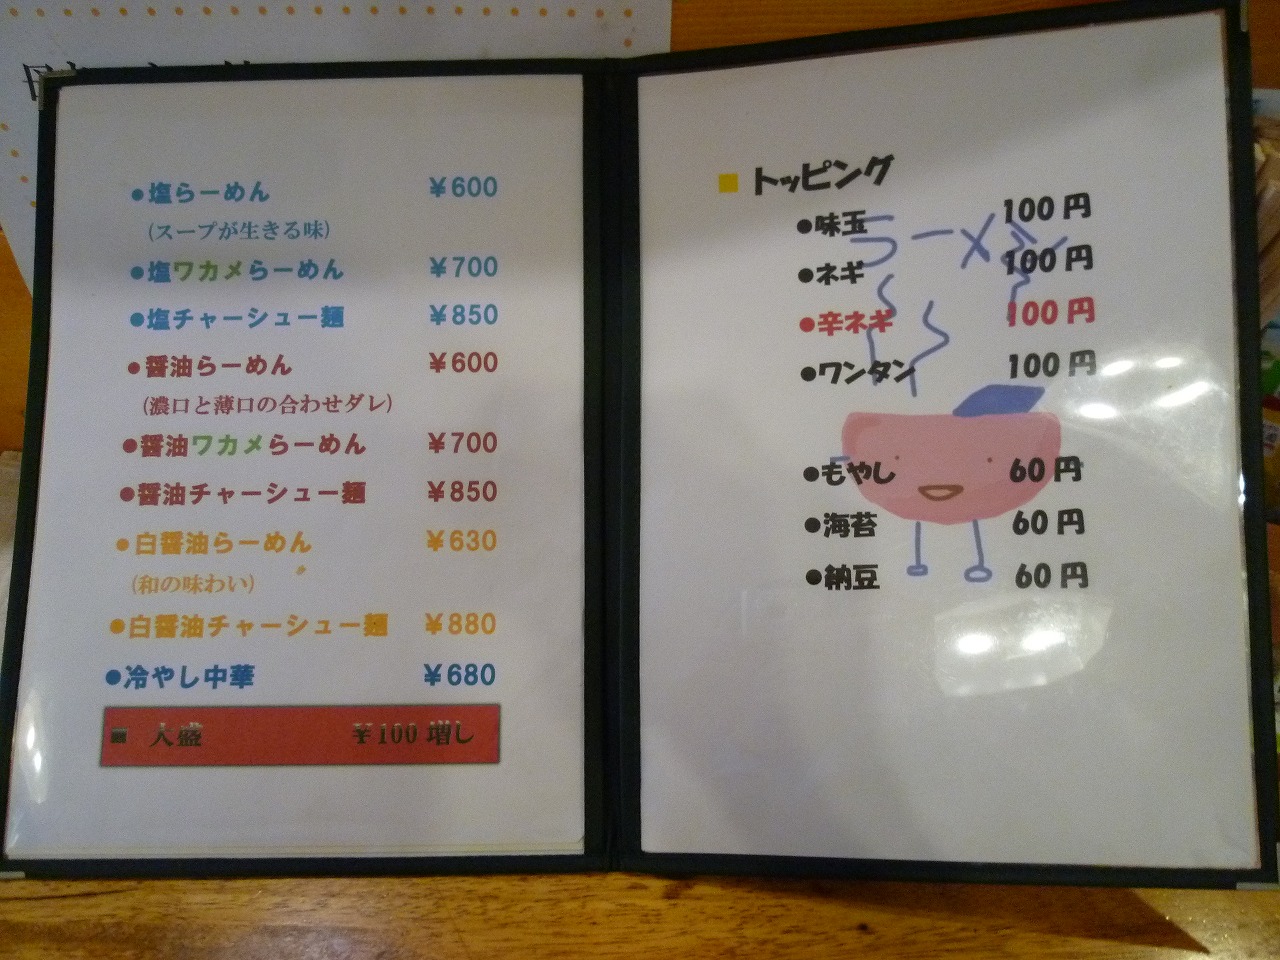 ●塩らーめん ¥600
(スープが生きる味)
●塩ワカメらーめん ¥700
●塩チャーシュー麺 ¥850
●醤油らーめん ¥600
(濃口と薄口の合わせダレ)
●醤油ワカメらーめん ¥700
●醤油チャーシュー麺 ¥850
●白醤油らーめん ¥630
(和の味わい)
●白醤油チャーシュー麺 ¥880
●冷やし中華 ¥680
■ 大盛 ¥100増し
■トッピング
●味玉 100円
●ネギ 100円
●辛ネギ 100円
●ワンタン 100円
●もやし 60円
●海苔 60円
●納豆 60円
らーめん